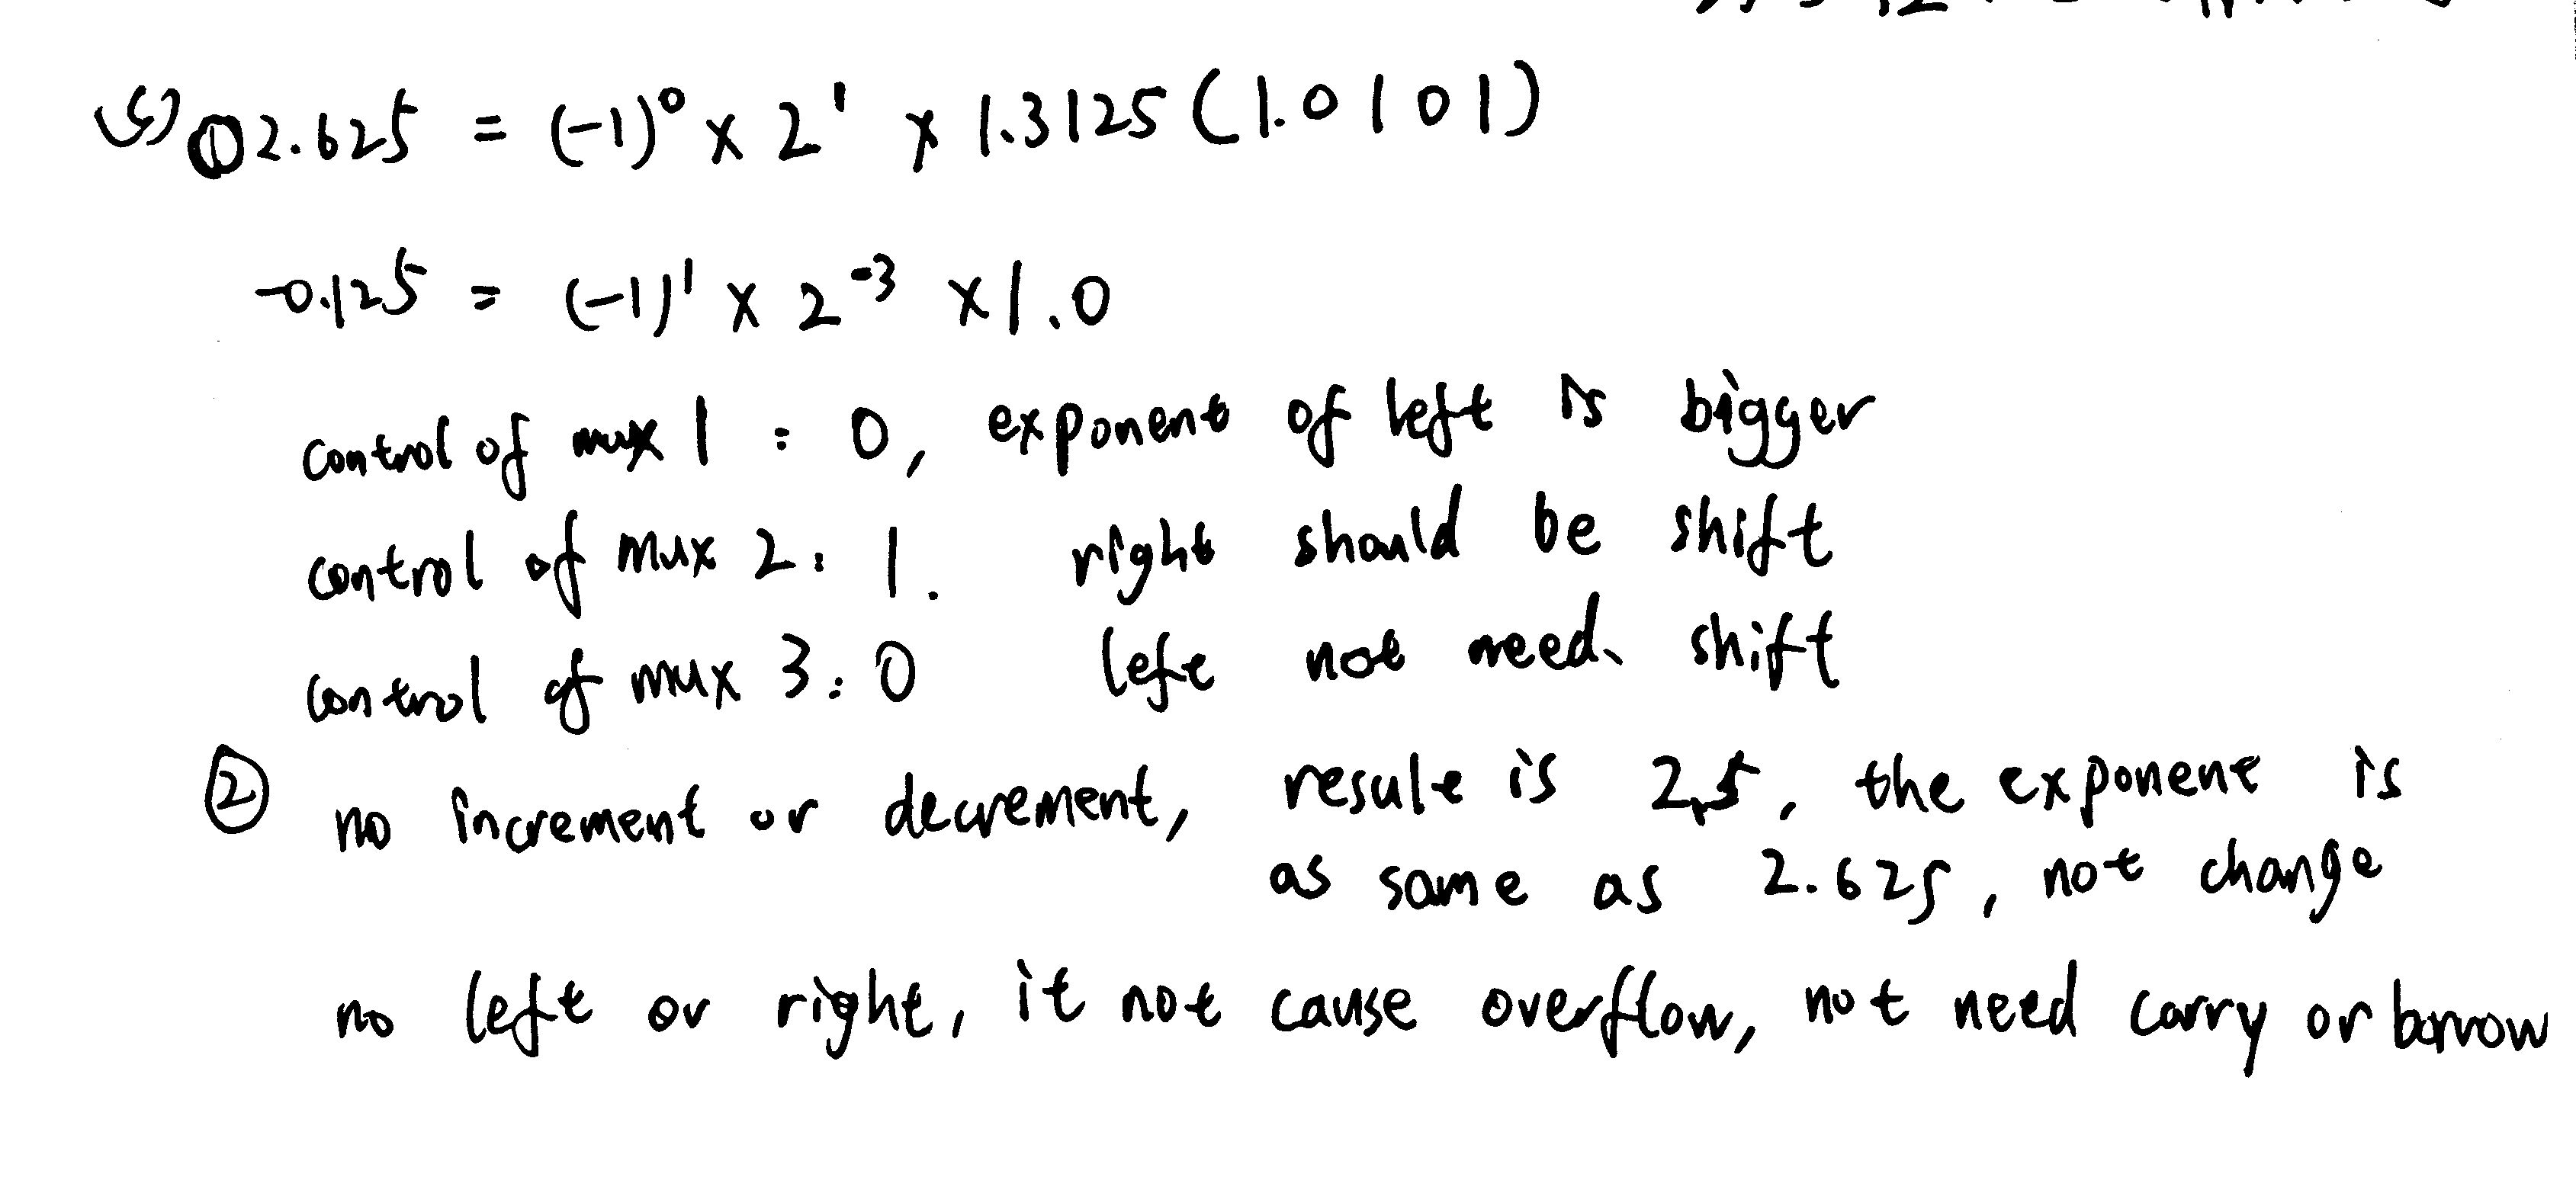 (5) ① 2.625 = (-1)⁰ × 2¹ × 1.3125 (1.0101)
-0.125 = (-1)¹ × 2⁻³ × 1.0
control of mux 1 : 0, exponent of left is bigger
control of mux 2 : 1. right should be shift
control of mux 3 : 0 left not need shift
② no increment or decrement, result is 2.5, the exponent is
as same as 2.625, not change
no left or right, it not cause overflow, not need carry or borrow